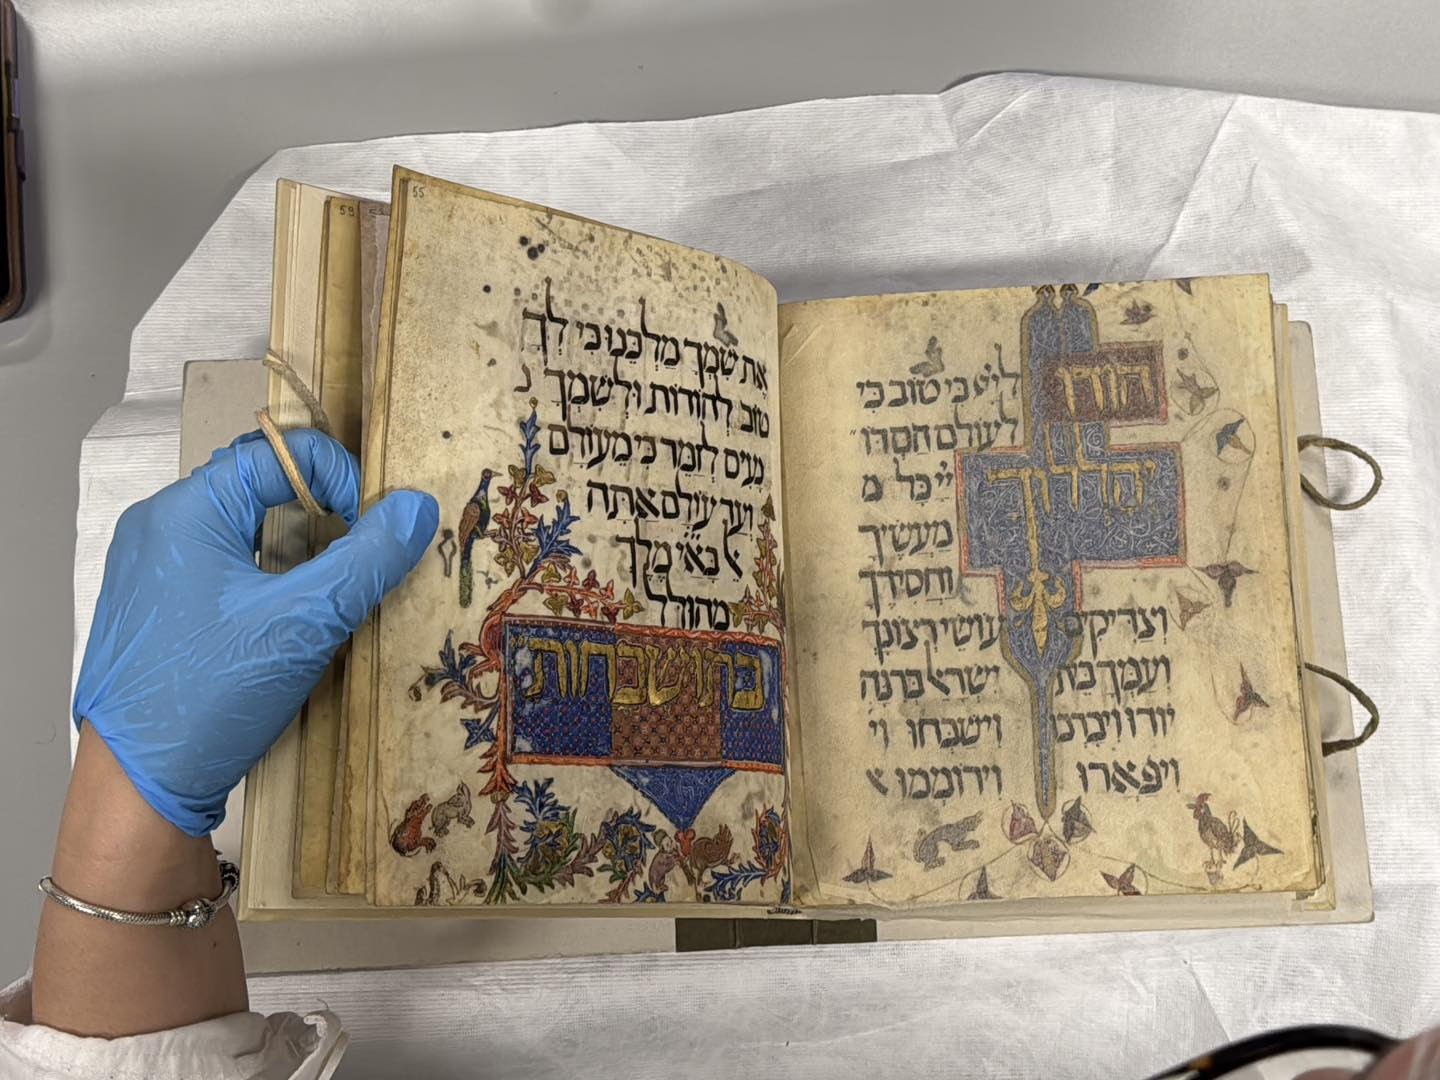 הודו לי״י כי טוב כי
לעולם חסדו
יהללוך י״י כל מ
מעשיך
וחסידיך
וצדיקים עושי רצונך
ועמך בית ישראל ברנה
יודו ויברכו וישבחו וי
ויפארו וירוממו א
55
את שמך מלכנו כי לך
טוב להודות ולשמך נ
נעים לזמר כי מעולם
ועד עולם אתה
מלך
מהולל
בתושבחות
59